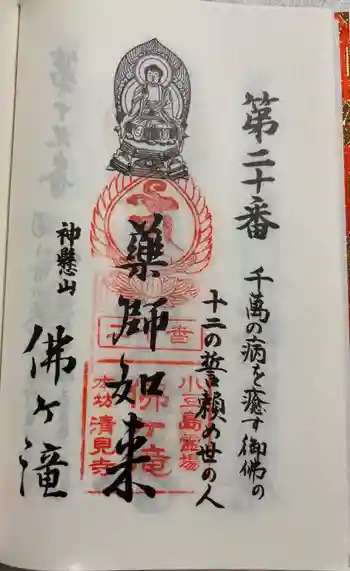 第二十番
千萬の病を癒す御佛の
十二の誓賴め世の人
藥師如来
神懸山
佛ヶ瀧
小豆島霊場
佛ヶ竜
本坊 清見寺